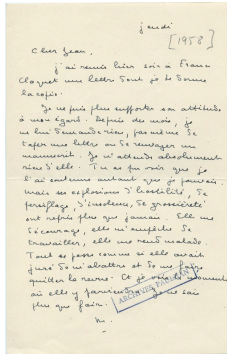 jeudi
[1958]
Cher Jean,
j'ai remis hier soir à France
Cloquet une lettre dont je te donne
la copie.
Je ne puis plus supporter son attitude
à mon égard. Depuis des mois, je
ne lui demande rien, pas même de
taper une lettre ou de renvoyer un
manuscrit. Je n'attends absolument
rien d'elle. Tu as pu voir que je
l'ai soutenue autant que je pouvais,
mais ses explosions d'hostilité, de
persiflage, d'insolence, de grossièreté
ont repris plus que jamais. Elle me
décourage, elle m'empêche de
travailler, elle me rend malade.
Tout se passe comme si elle avait
juré de m'abattre et de me faire
quitter la revue. Et je vois le moment
où elle y parviendra. Je ne sais
plus que faire.
M.
ARCHIVES PAULHAN